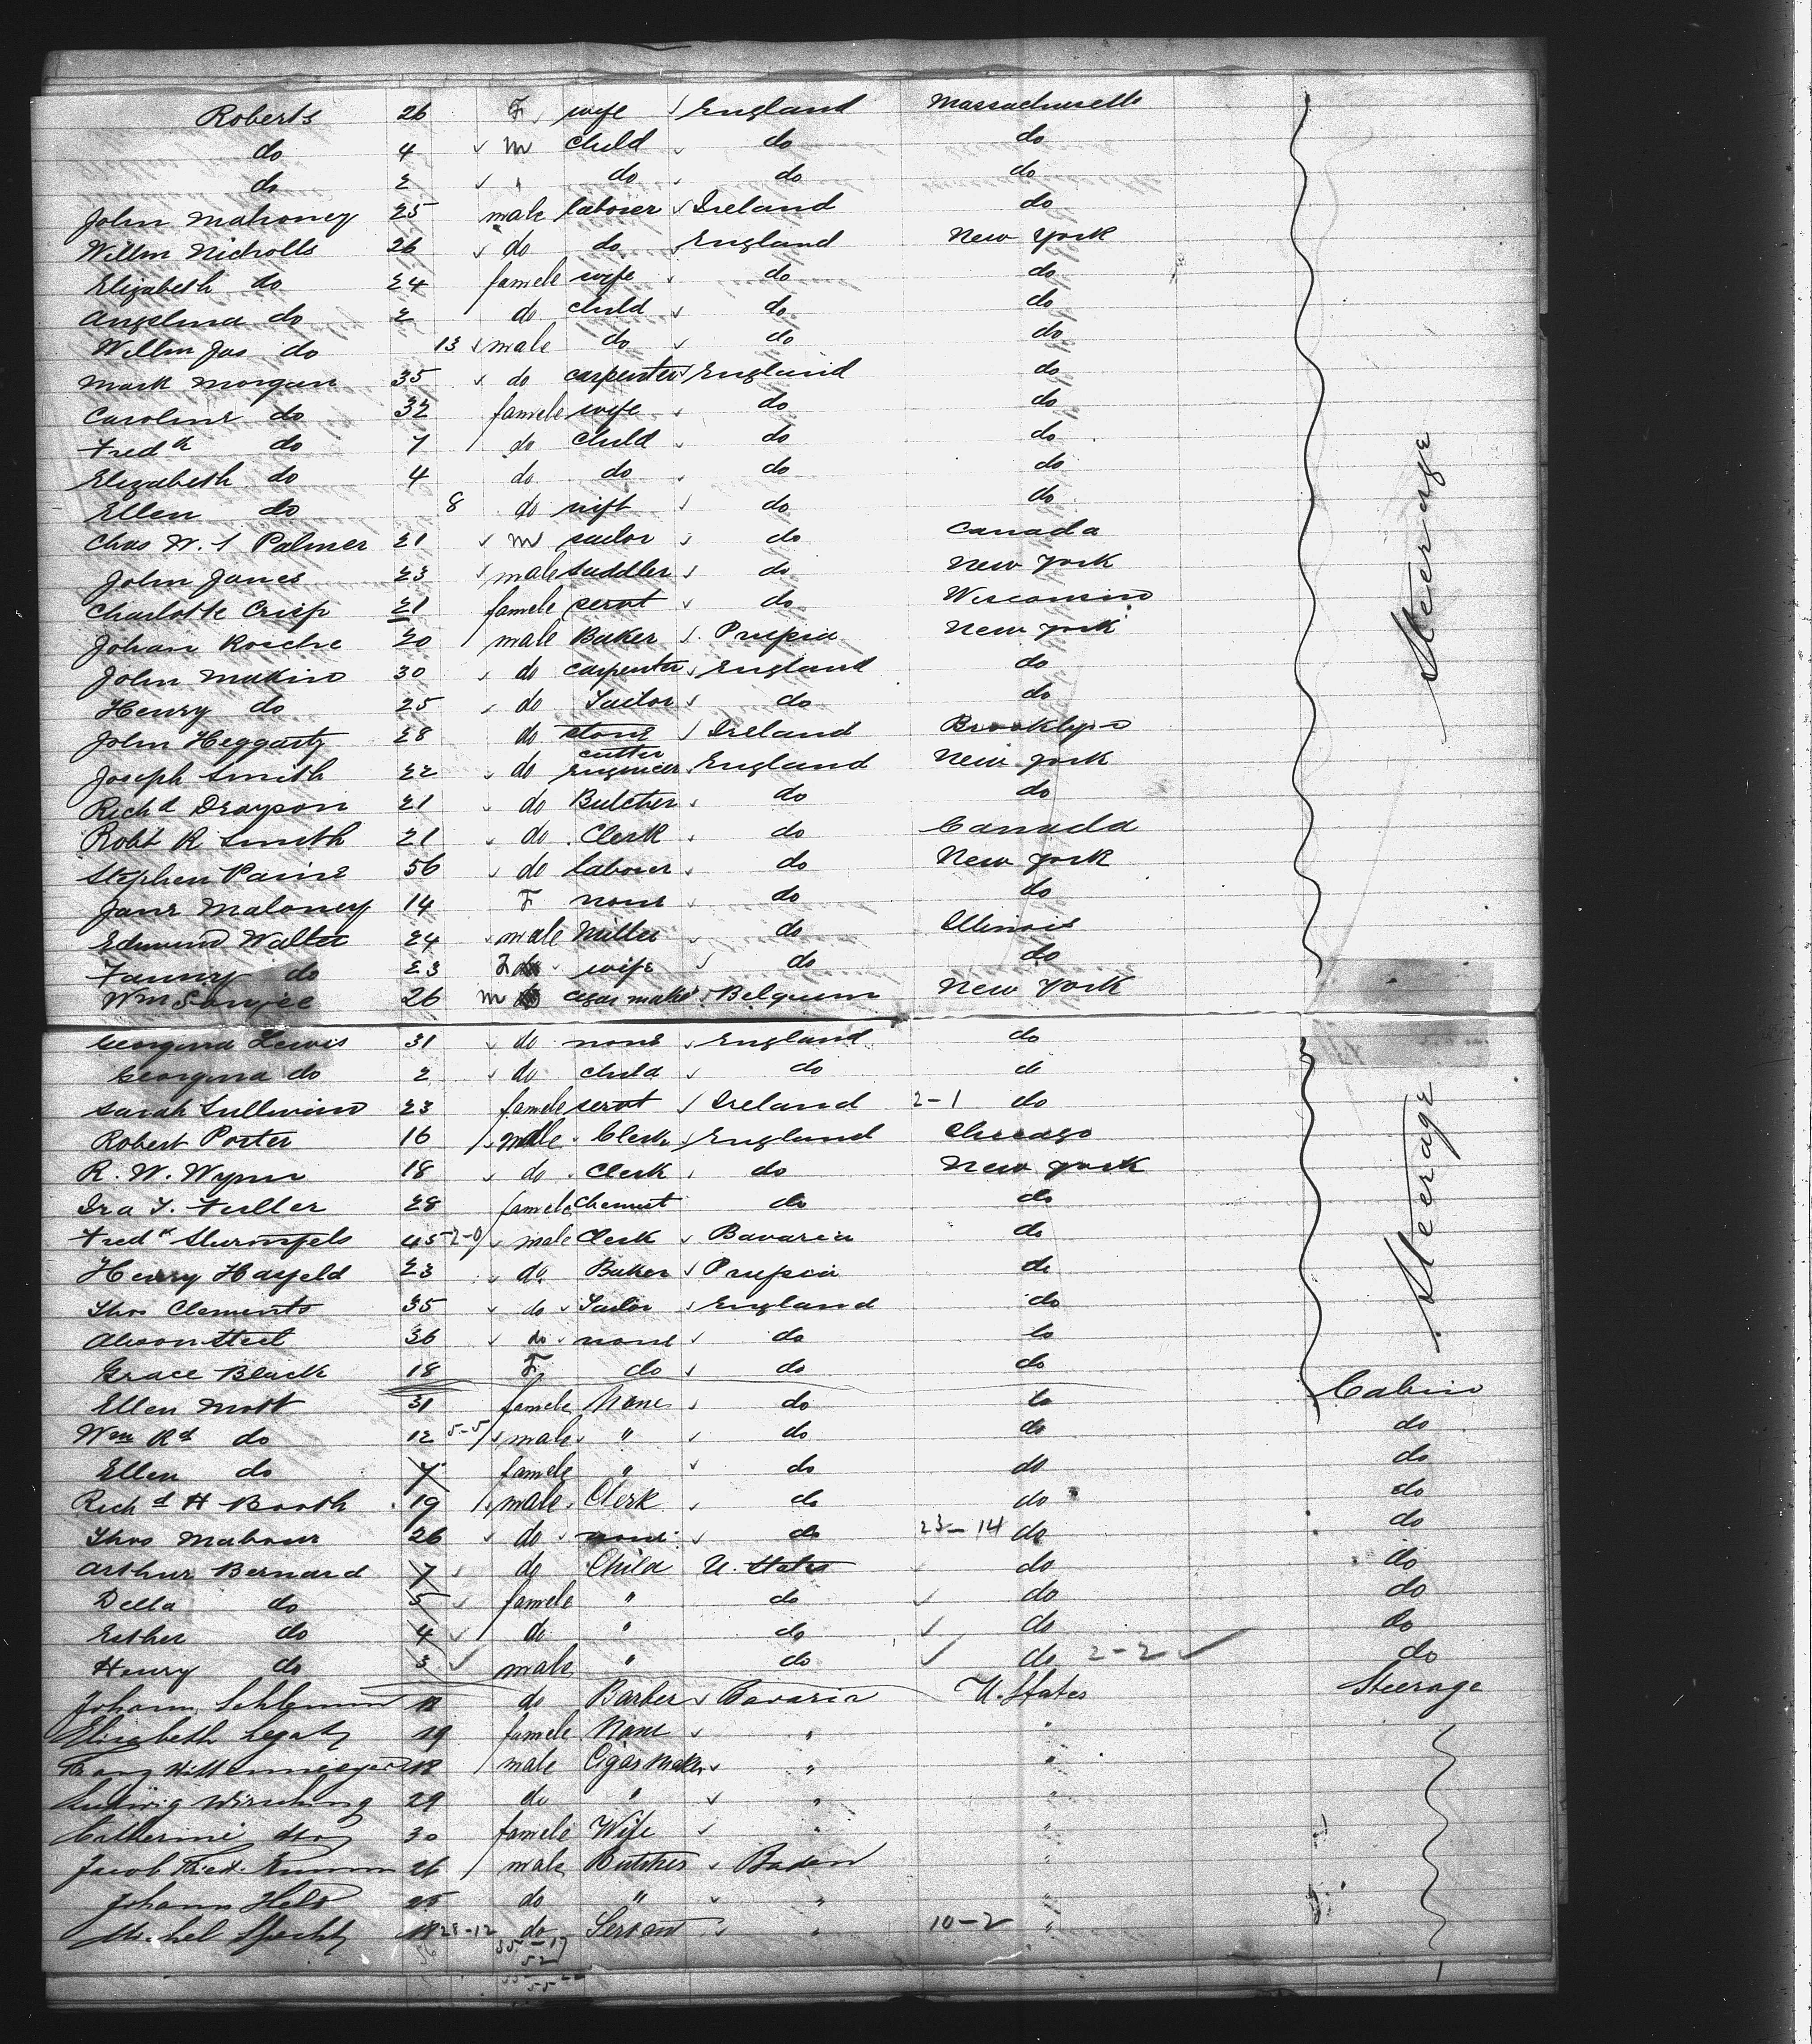 Roberts 26 F wife England Massachusetts
do 4 m child do do
do 2 " do do do
John Mahoney 25 male laborer Ireland do
Willm Nicholls 26 do do England New York
Elizabeth do 24 famele wife do do
Angelina do 2 do child do do
Willm Jas do 13 male do do do
Mark Morgan 35 do carpenter England do
Caroline do 32 famele wife do do
Fredk do 7 do child do do
Elizabeth do 4 do do do do
Ellen do 8 do inft do do
Chas W. Palmer 21 m sailor do Canada
John Jones 23 male saddler do New York
Charlotte Crisp 21 famele servt do Wisconsin
Johan Rosche 20 male Baker Prussia New York
John Makin 30 do carpenter England do
Henry do 25 do Tailor do do
John Heggarty 28 do stone cutter Ireland Brooklyn
Joseph Smith 22 do Engineer England New York
Richd Drayson 21 do Butcher do do
Robt R Smith 21 do Clerk do Canada
Stephen Paine 56 do laborer do New York
Jane Maloney 14 F none do do
Edmund Walter 24 male Miller do Illinois
Fanny do 23 F wife do do
Wm 26 m cigar maker Belgium New York
Steerage
Georgina Lewis 31 do none England do
Georgina do 2 do child do do
Sarah Sullivan 23 famele servt Ireland 2-1 do
Robert Porter 16 male Clerk England Chicago
R. W. Wynn 18 do Clerk do New York
Ira T. Fuller 28 famele Chemist do do
Fredk Sturmfels 45 2-0 male Clerk Bavaria do
Henry Hayfeld 23 do Baker Prussia do
Thos Clements 35 do Tailor England do
Steel 36 do none do do
Grace Black 18 F do do do
Steerage
Ellen Mott 31 famele None do do Cabin
Wm Rd do 12 5-5 male " do do do
Ellen do 7 famele " do do do
Richd H Booth 19 male Clerk do do do
Thos 26 do none do 23-14 do do
Arthur Bernard 7 do Child U. States do do
Della do 5 famele " do do do
Esther do 4 do " do do do
Henry do 3 male " do do 2-2 do
Johann 18 do Barber Bavaria U. States Steerage
Elisabeth Legatz 19 famele None " "
Franz 18 male Cigar Maker " "
Ludwig Wirsching 29 do " " "
Catherine 30 famele Wife " "
Jacob Fried. 26 male Butcher Baden "
Johann Held 25 do " " "
Michel Specht 18 28-12 do Servant " 10-2 "